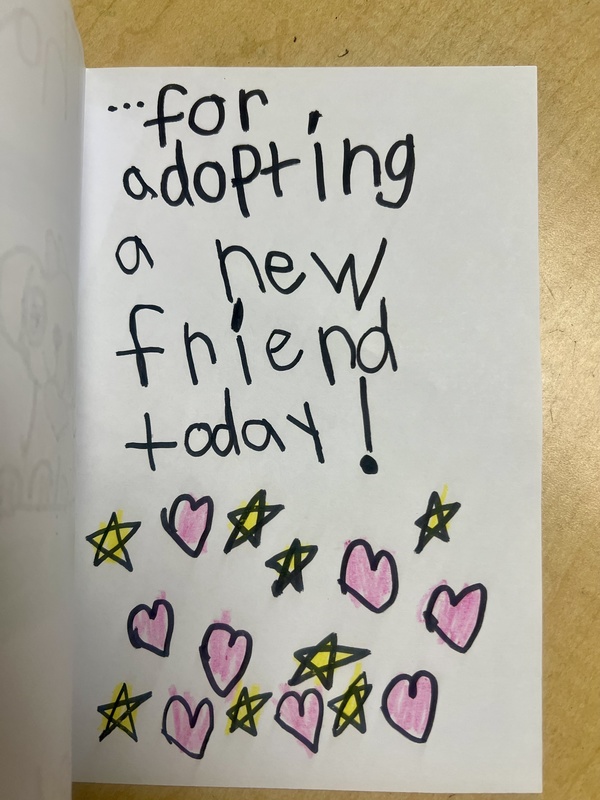 ...for
adopting
a new
friend
today!